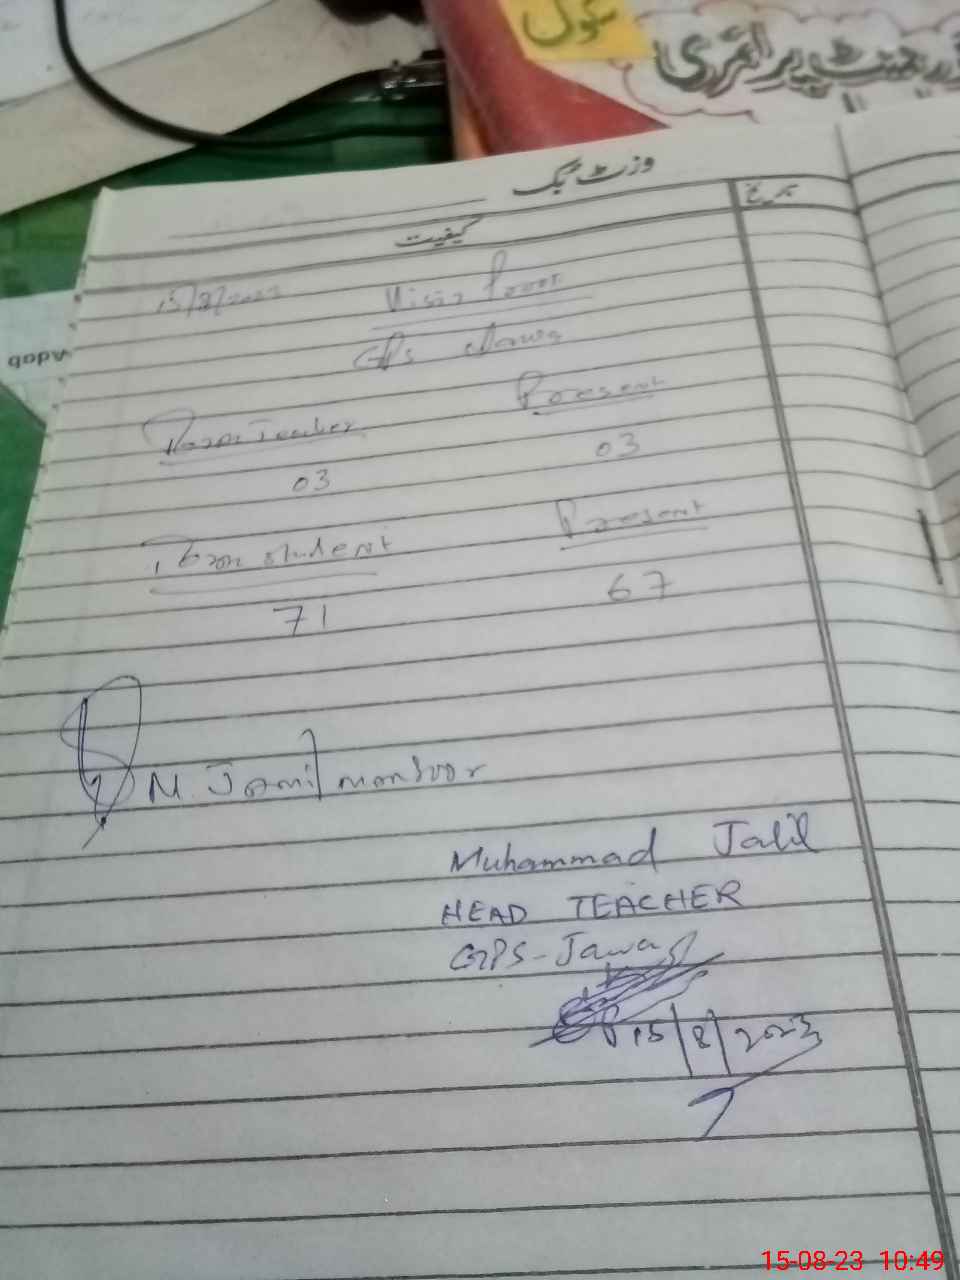 سکول
گورنمنٹ پرائمری
وزٹ بک
کیفیت
تاریخ
15/8/2023
Visit Proof
GPS Jawa
Present
Total Teacher
03
03
Total Student
Present
71
67
M. Jamil manzoor
Muhammad Jalil
HEAD TEACHER
GPS-Jawa
15/8/2023
Adab
15-08-23 10:49